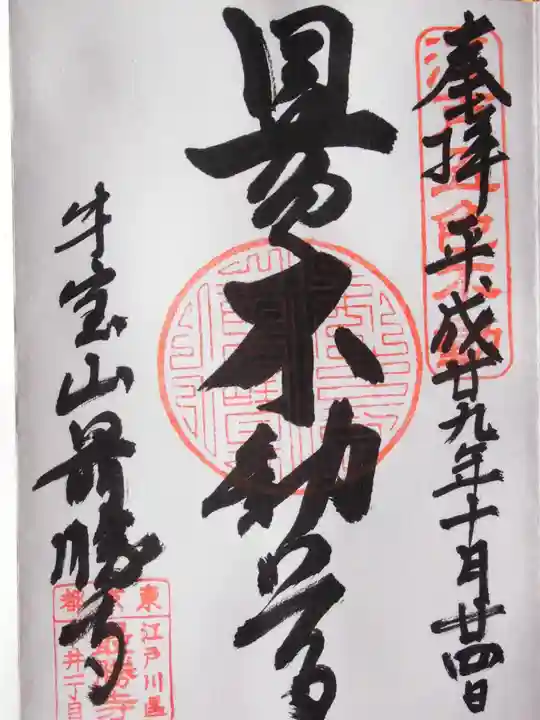 奉拝 平成廿九年十月廿四日
目黄不動尊
牛宝山最勝寺
東京都
江戸川區
最勝寺